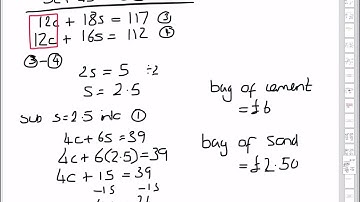 12c + 18s = 117 ③
12c + 16s = 112 ④
③-④
2s = 5 ÷2
s = 2.5
sub s=2.5 into ①
4c + 6s = 39
4c + 6(2.5) = 39
4c + 15 = 39
-15 -15
bag of cement
= £6
bag of sand
= £2.50